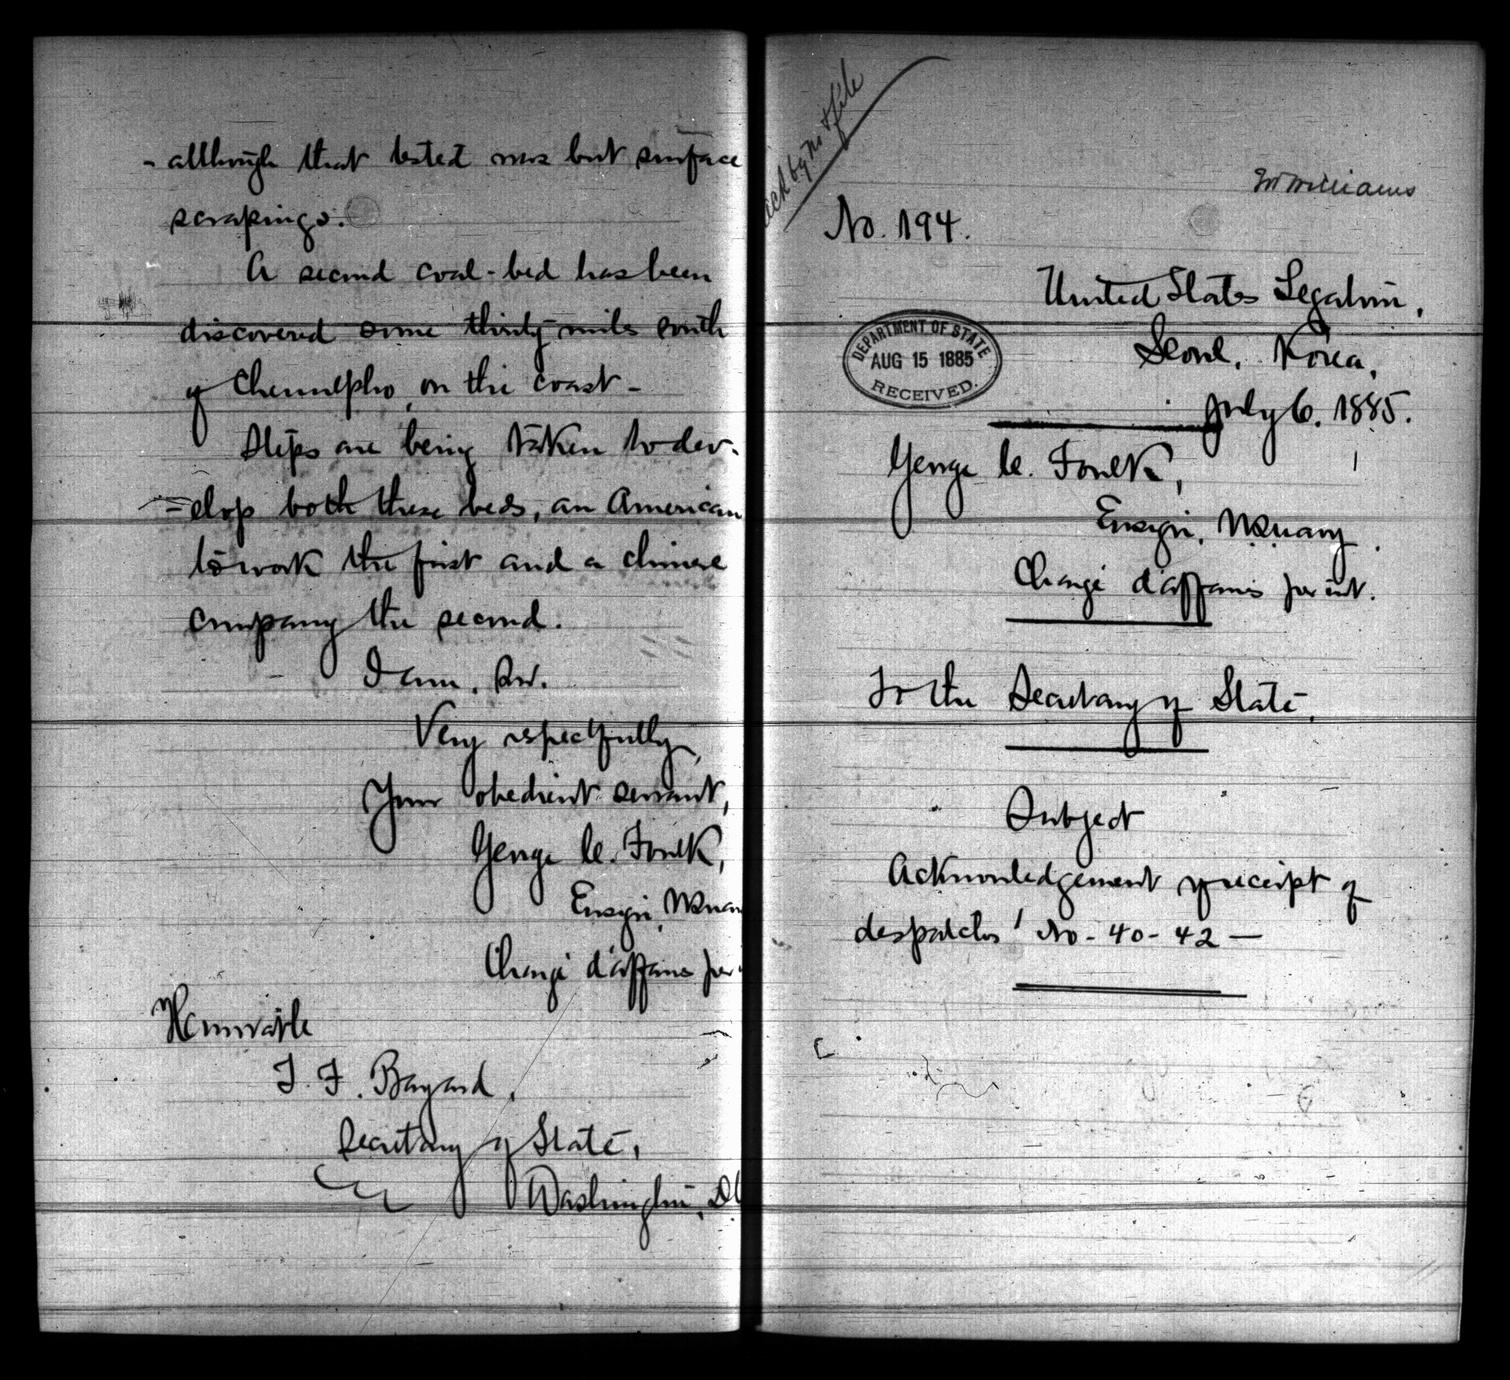 - although that tested was but surface
scrapings.
A second coal-bed has been
discovered some thirty miles south
of Chemulpho, on the coast -
Steps are being taken to dev-
=elop both these beds, an American
to work the first and a chinese
company the second.
I am, Sir.
Very respectfully,
Your obedient servant,
George C. Foulk,
Ensign,
Chargé d'affaires
Honorable
T. F. Bayard,
Secretary of State,
Washington, D.C
ack by No & file
Mr Williams
No. 194.
United States Legation,
Seoul, Korea,
July 6. 1885.
DEPARTMENT OF STATE
AUG 15 1885
RECEIVED.
George C. Foulk,
Ensign,
Chargé d'affaires
To the Secretary of State,
Subject
Acknowledgement of receipt of
despatches' No - 40 - 42 —